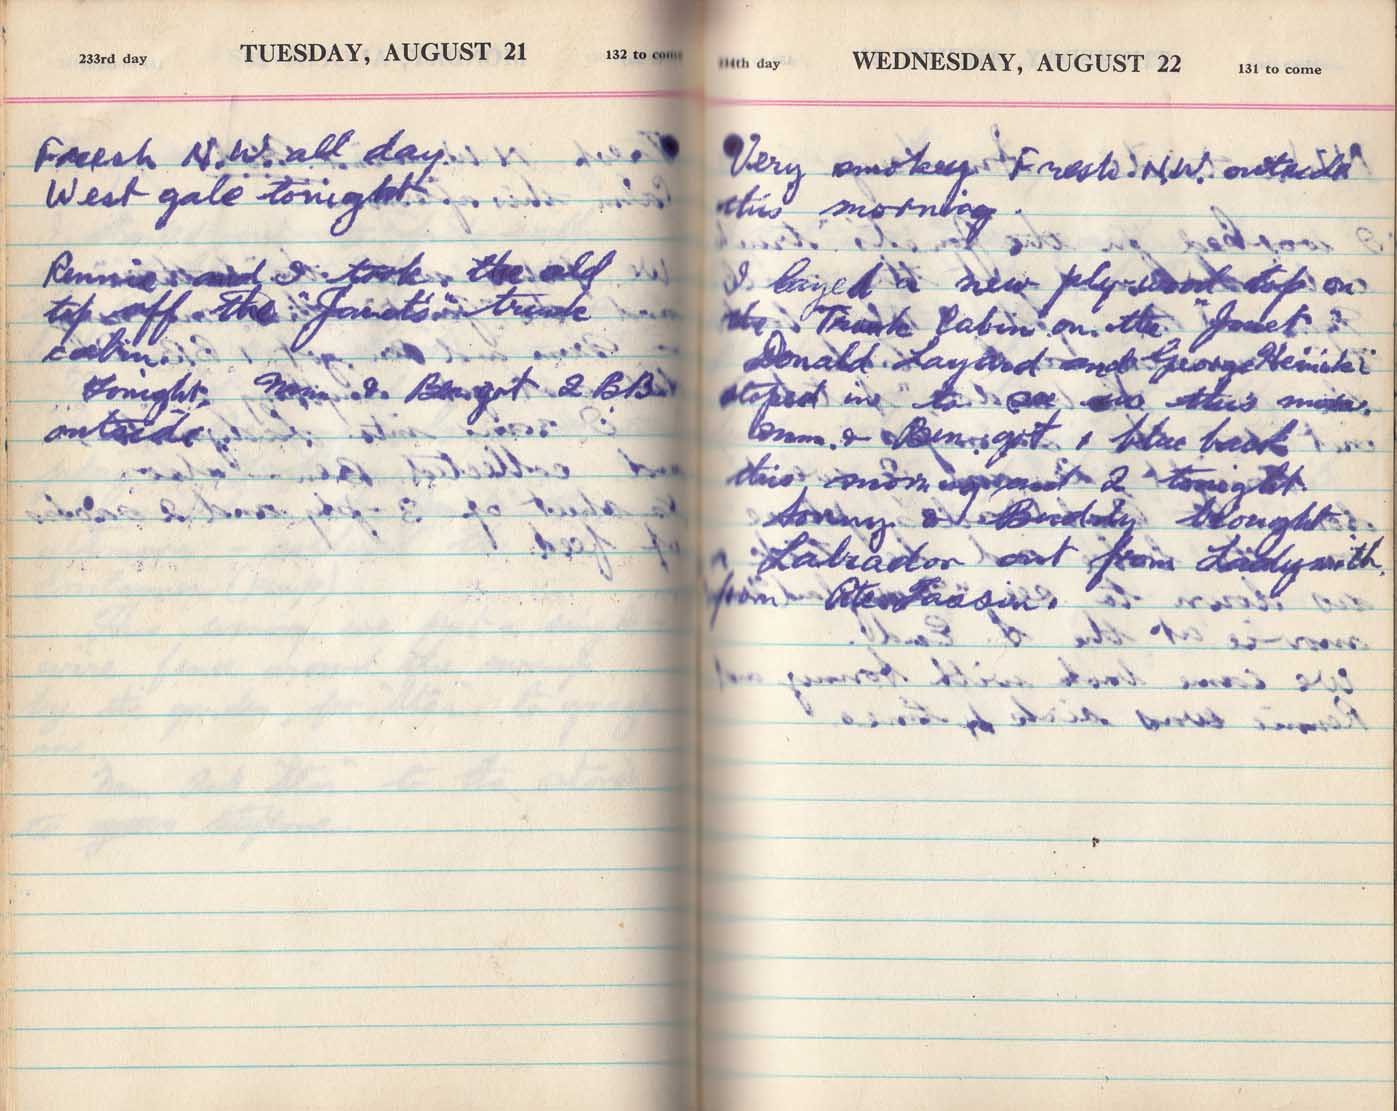 233rd day TUESDAY, AUGUST 21 132 to come
Freesh N.W. all day
West gale tonight
Rennie and I took the old
top off the "Janet's" trunk
cabin.
Tonight. Mom & Ben got 2 BB
outside
234th day WEDNESDAY, AUGUST 22 131 to come
Very smokey Fresh N.W. outside
this morning.
I layed a new ply-wood top on
the Trunk Cabin on the "Janet"
Donald Layard and George
stoped in to see us this morn.
Mom. & Ben. got 1 blue back
this morning and 2 tonight
Sonny & Buddy brought
Labrador out from Ladysmith
from